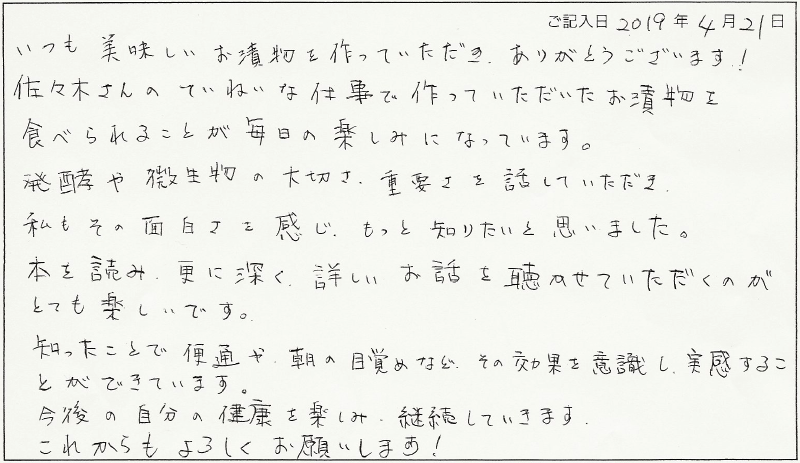 ご記入日 2019年4月21日
いつも美味しいお漬物を作っていただき、ありがとうございます!
佐々木さんのていねいな仕事で作っていただいたお漬物を
食べられることが毎日の楽しみになっています。
発酵や微生物の大切さ、重要さを話していただき、
私もその面白さを感じ、もっと知りたいと思いました。
本を読み、更に深く、詳しいお話を聴かせていただくのが
とても楽しいです。
知ったことで便通や、朝の目覚めなど、その効果を意識し、実感するこ
とができています。
今後の自分の健康を楽しみ、継続していきます。
これからもよろしくお願いします!